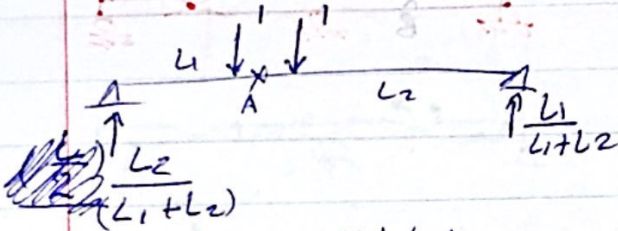 1 1
L1 A L2
L2/(L1+L2)
L1/L1+L2